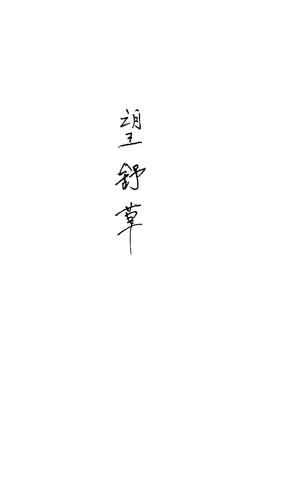 望舒草